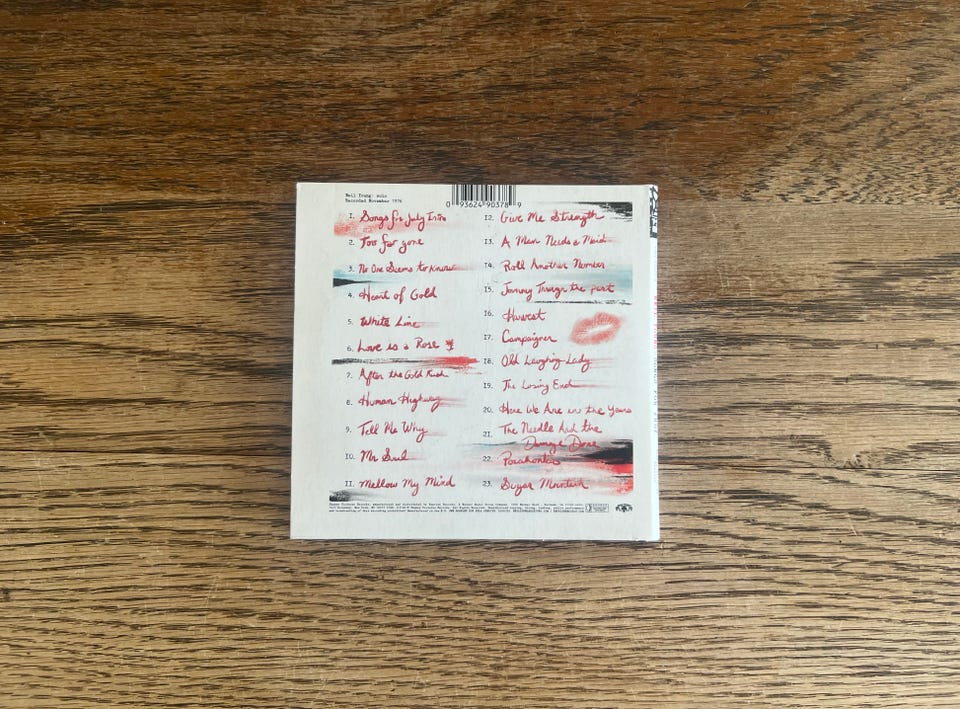 Neil Young: solo
Recorded November 1976
0 93624 90378 9
1. Songs for July Intro
2. Too far gone
3. No One Seems to Know
4. Heart of Gold
5. White Line
6. Love is a Rose
7. After the Gold Rush
8. Human Highway
9. Tell Me Why
10. Mr Soul
11. Mellow My Mind
12. Give Me Strength
13. A Man Needs a Maid
14. Roll Another Number
15. Journey Through the past
16. Harvest
17. Campaigner
18. Old Laughing Lady
19. The Losing End
20. Here We Are in the Years
21. The Needle And the
Damage Done
22. Pocahontas
23. Sugar Mountain